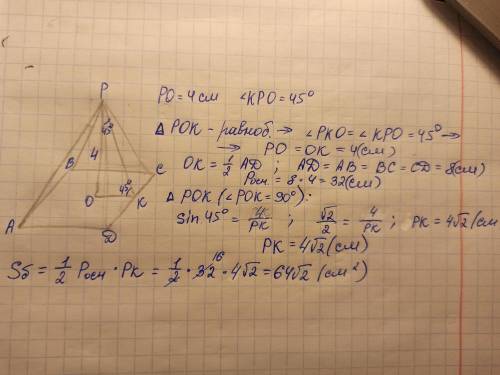 P
45°
B
4
C
O
45°
K
A
D
PO = 4 см ∠KPO = 45°
△ POK - равноб. → ∠PKO = ∠KPO = 45° →
→ PO = OK = 4 (см)
OK = 1/2 AD ; AD = AB = BC = CD = 8 (см)
Pосн = 8 · 4 = 32 (см)
△ POK (∠POK = 90°):
sin 45° = 4/PK ; √2/2 = 4/PK ; PK = 4√2 (см
PK = 4√2 (см)
Sб = 1/2 Pосн · PK = 1/2 · 32 16 · 4√2 = 64√2 (см²)